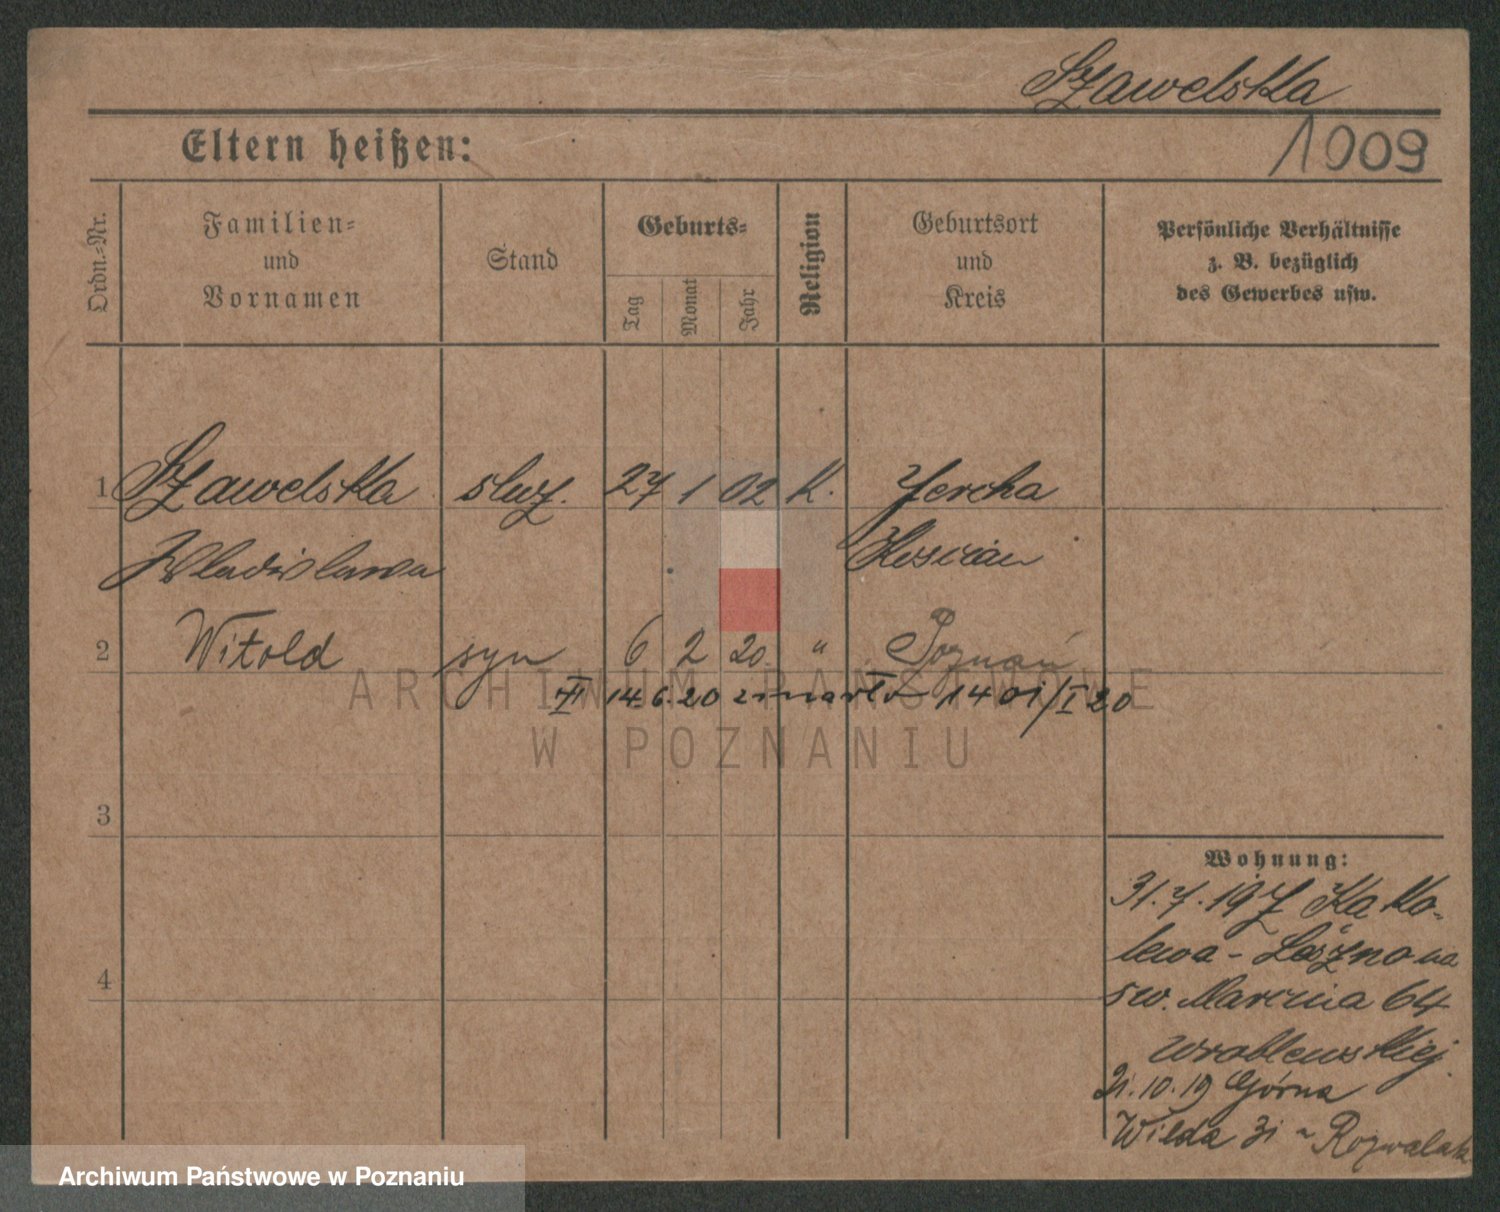 Szawelska
Eltern heißen:
1009
Ordn.-Nr.
Familien-
und
Vornamen
Stand
Geburts-
Tag
Monat
Jahr
Religion
Geburtsort
und
Kreis
Persönliche Verhältnisse
z. B. bezüglich
des Gewerbes usw.
1 Szawelska służ. 27 1 02 K. Jercha
Wladislawa Koscian
2 Witold syn 6 2 20 " Poznań
14.6.20 zmarł 14 I 20
3
4
Wohnung:
31.7.19 z Kąko-
lewa - Leszno na
św. Marcina 64
Wroblewskiej
21.10.19 Górna
Wilda 31 Rozwalak
ARCHIWUM PAŃSTWOWE
W POZNANIU
Archiwum Państwowe w Poznaniu